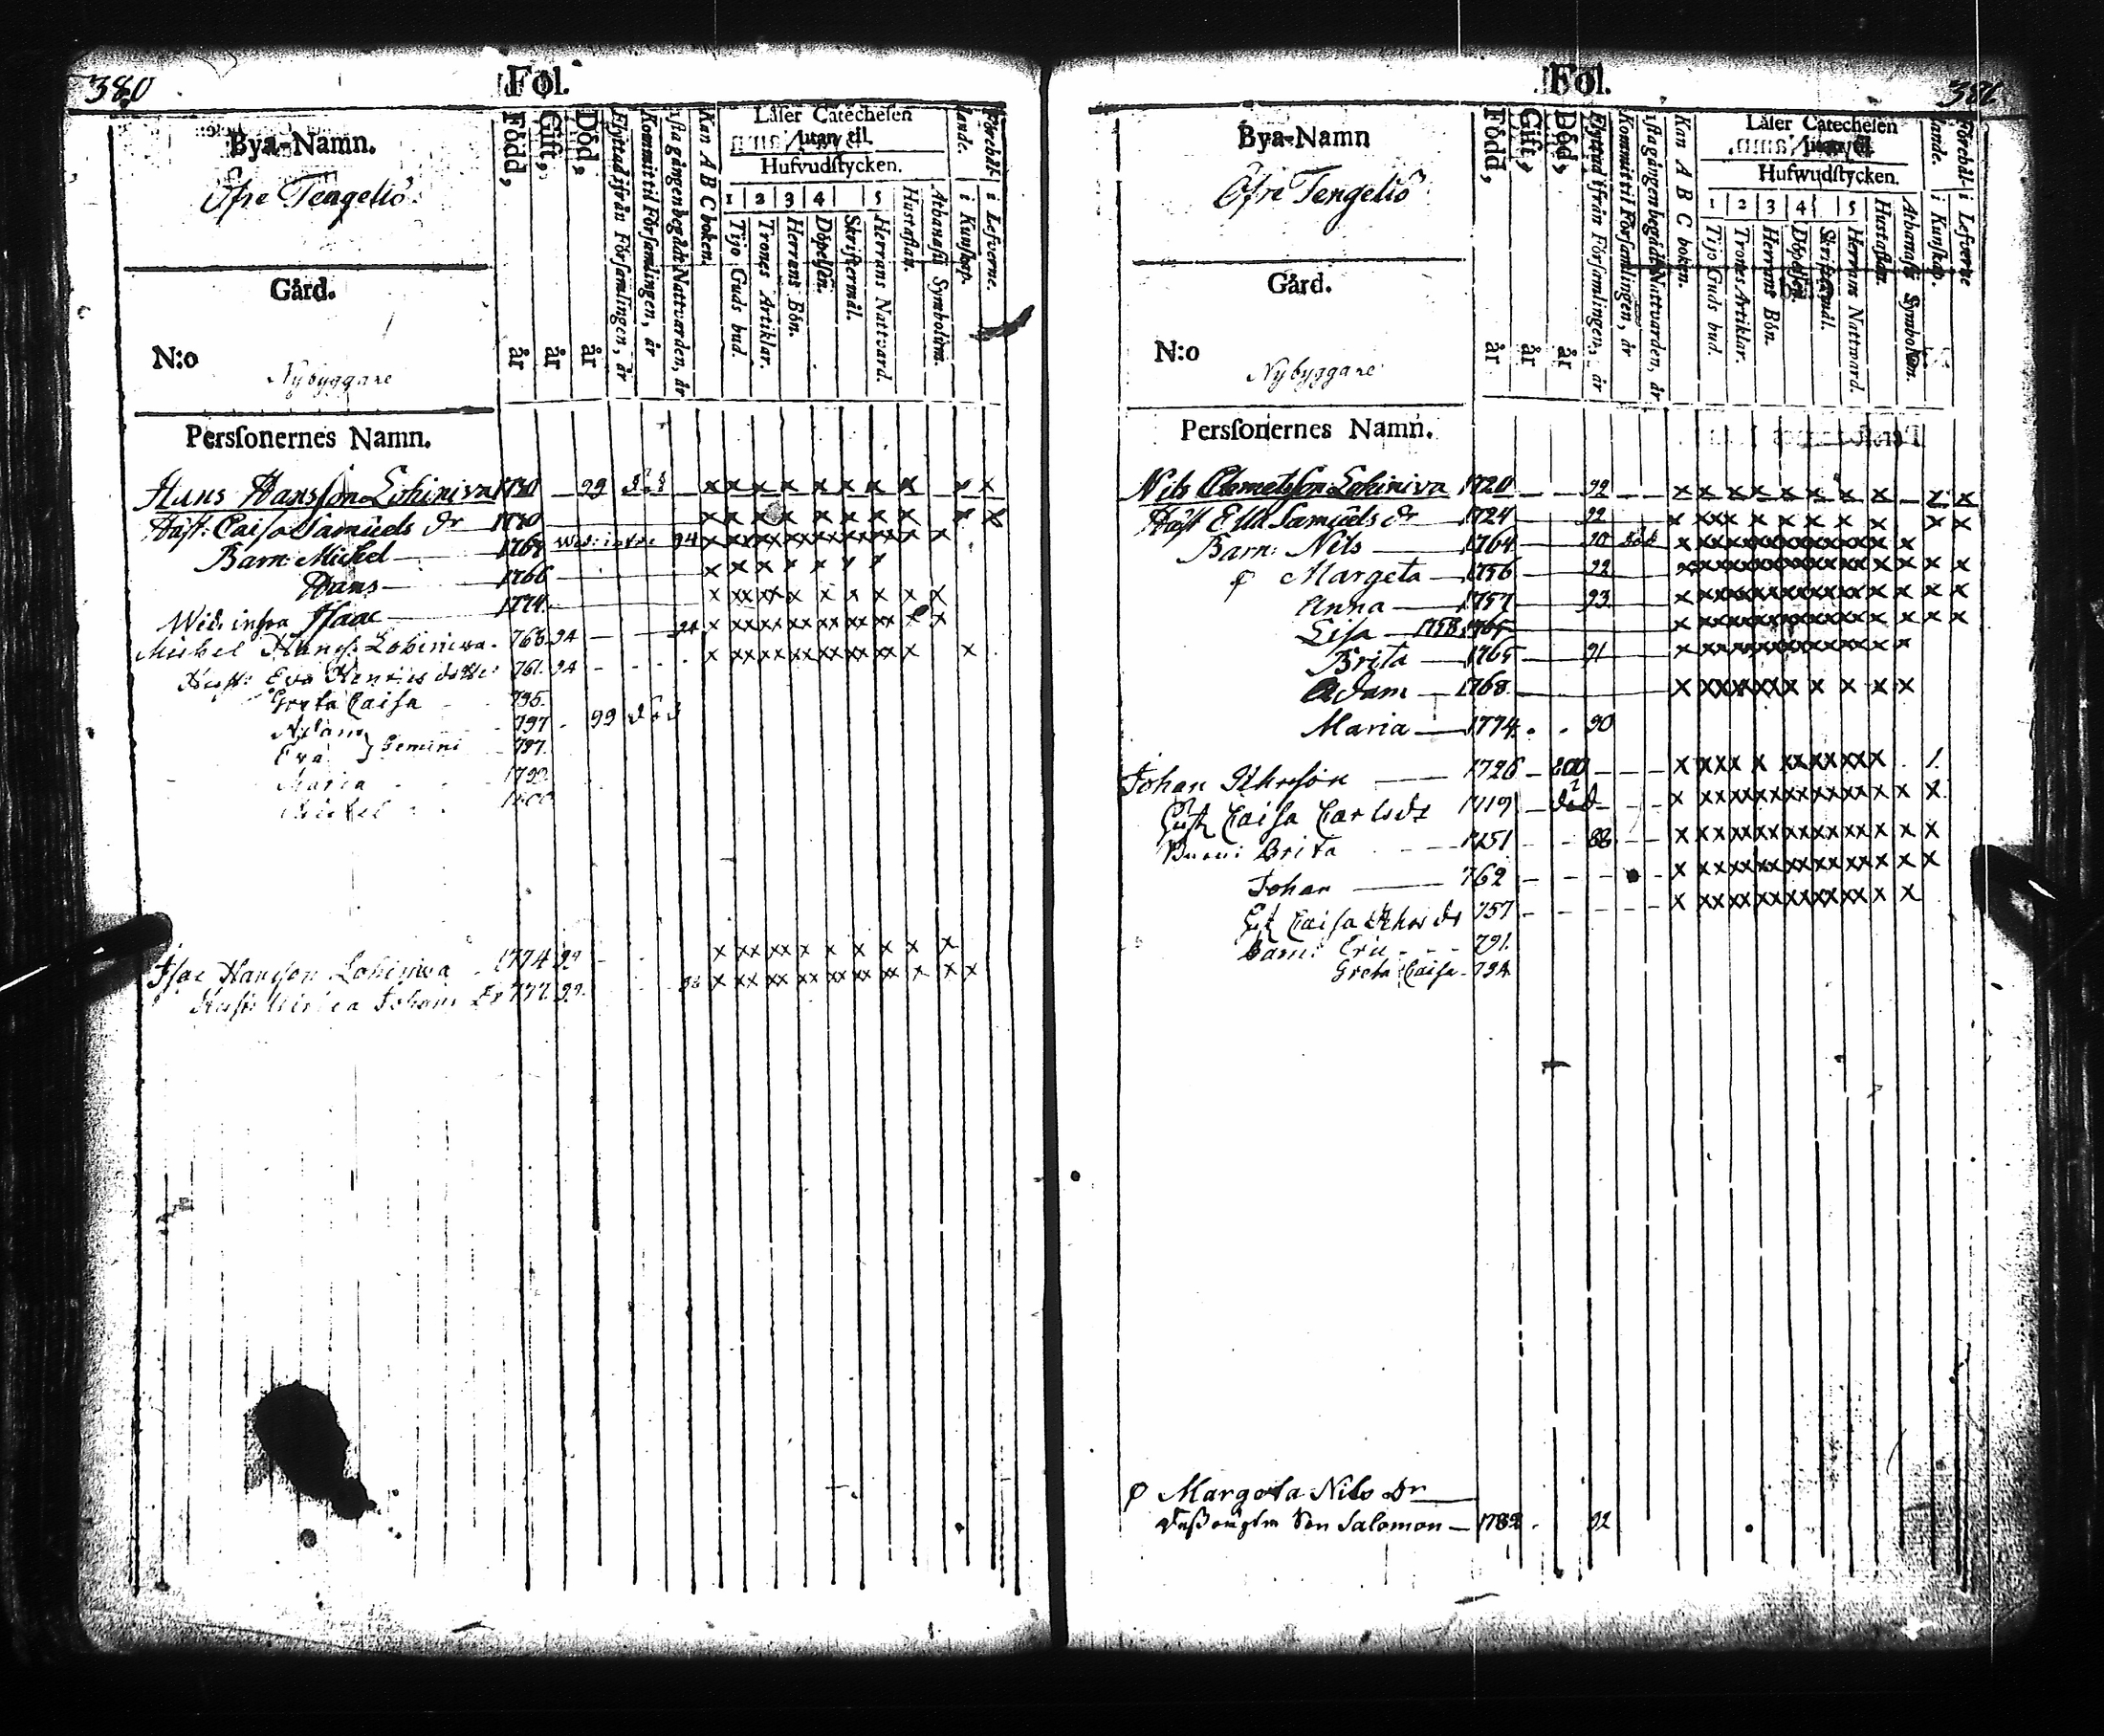 380
Fol.
Bya-Namn.
Öfre Tengeliö
Gård.
N:o
Nybyggare
Född, år
Gift, år
Död, år
Flyttad ifrån Församlingen, år
Kommit til Församlingen, år
sista gången begådt Nattvarden, år
Kan A B C boken.
Läser Catechesen
utan til.
Hufvudstycken.
1 2 3 4 5
Tijo Guds bud.
Trones Artiklar.
Herrans Bön.
Döpelsen.
Skriftermål.
Herrans Nattvard.
Hustaflan.
Athanasii Symbolum.
Förehållande.
i Kunskap.
i Lefverne.
Persſonernes Namn.
Hans Hansson Lohiniva 1730 99 död
Hust: Caisa Samuels dr 1730
Barn Michel 1768 Wid: infra 94
Hans 1766
Wid: infra Isaac 1774
Michel Hanss: Lohiniwa 766 94 94
Hust: Eva Henrics dotter 761. 94
Greta Caisa 795.
Adam 797 99 död
Eva } Gemini 797.
Maria 1799.
Michel 1800
Isac Hansson Lohiniwa 1774 99
Hust: Johans Dr 777. 99. 96
Fol.
Bya-Namn
Öfre Tengeliö
Gård.
N:o
Nybyggare
Född, år
Gift, år
Död, år
Flyttad ifrån Församlingen, år
Kommit til Församlingen, år
sista gången begådt Nattvarden, år
Kan A B C boken.
Läser Catechesen
utan til.
Hufwudstycken.
1 2 3 4 5
Tijo Guds bud.
Trones Artiklar.
Herrans Bön.
Döpelsen.
Skriftermål.
Herrans Nattward.
Hustaflan.
Athanasii Symbolum.
Förehållande.
i Kunskap.
i Lefverne
Persſonernes Namn.
Nils Clemetsson Lohiniva 1720 92
Hust Ella Samuels dr 1724 92
Barn: Nils 1764 90 död
φ Margeta 1756 92
Anna 1757 93
Lisa 1758
Brita 1765 91
Adam 1768
Maria 1774 90
Johan Ihrsson 1726 800
Hust Caisa Carlsdr 1719 död
Barn: Brita 1751 88
Johan 762
Caisa 757
Barn: Eric 791.
Greta Caisa 794
φ Margeta Nils Dr
Son Salomon 1782 92